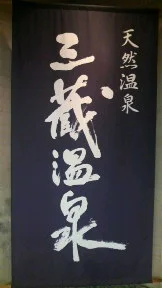 天然温泉
三蔵温泉